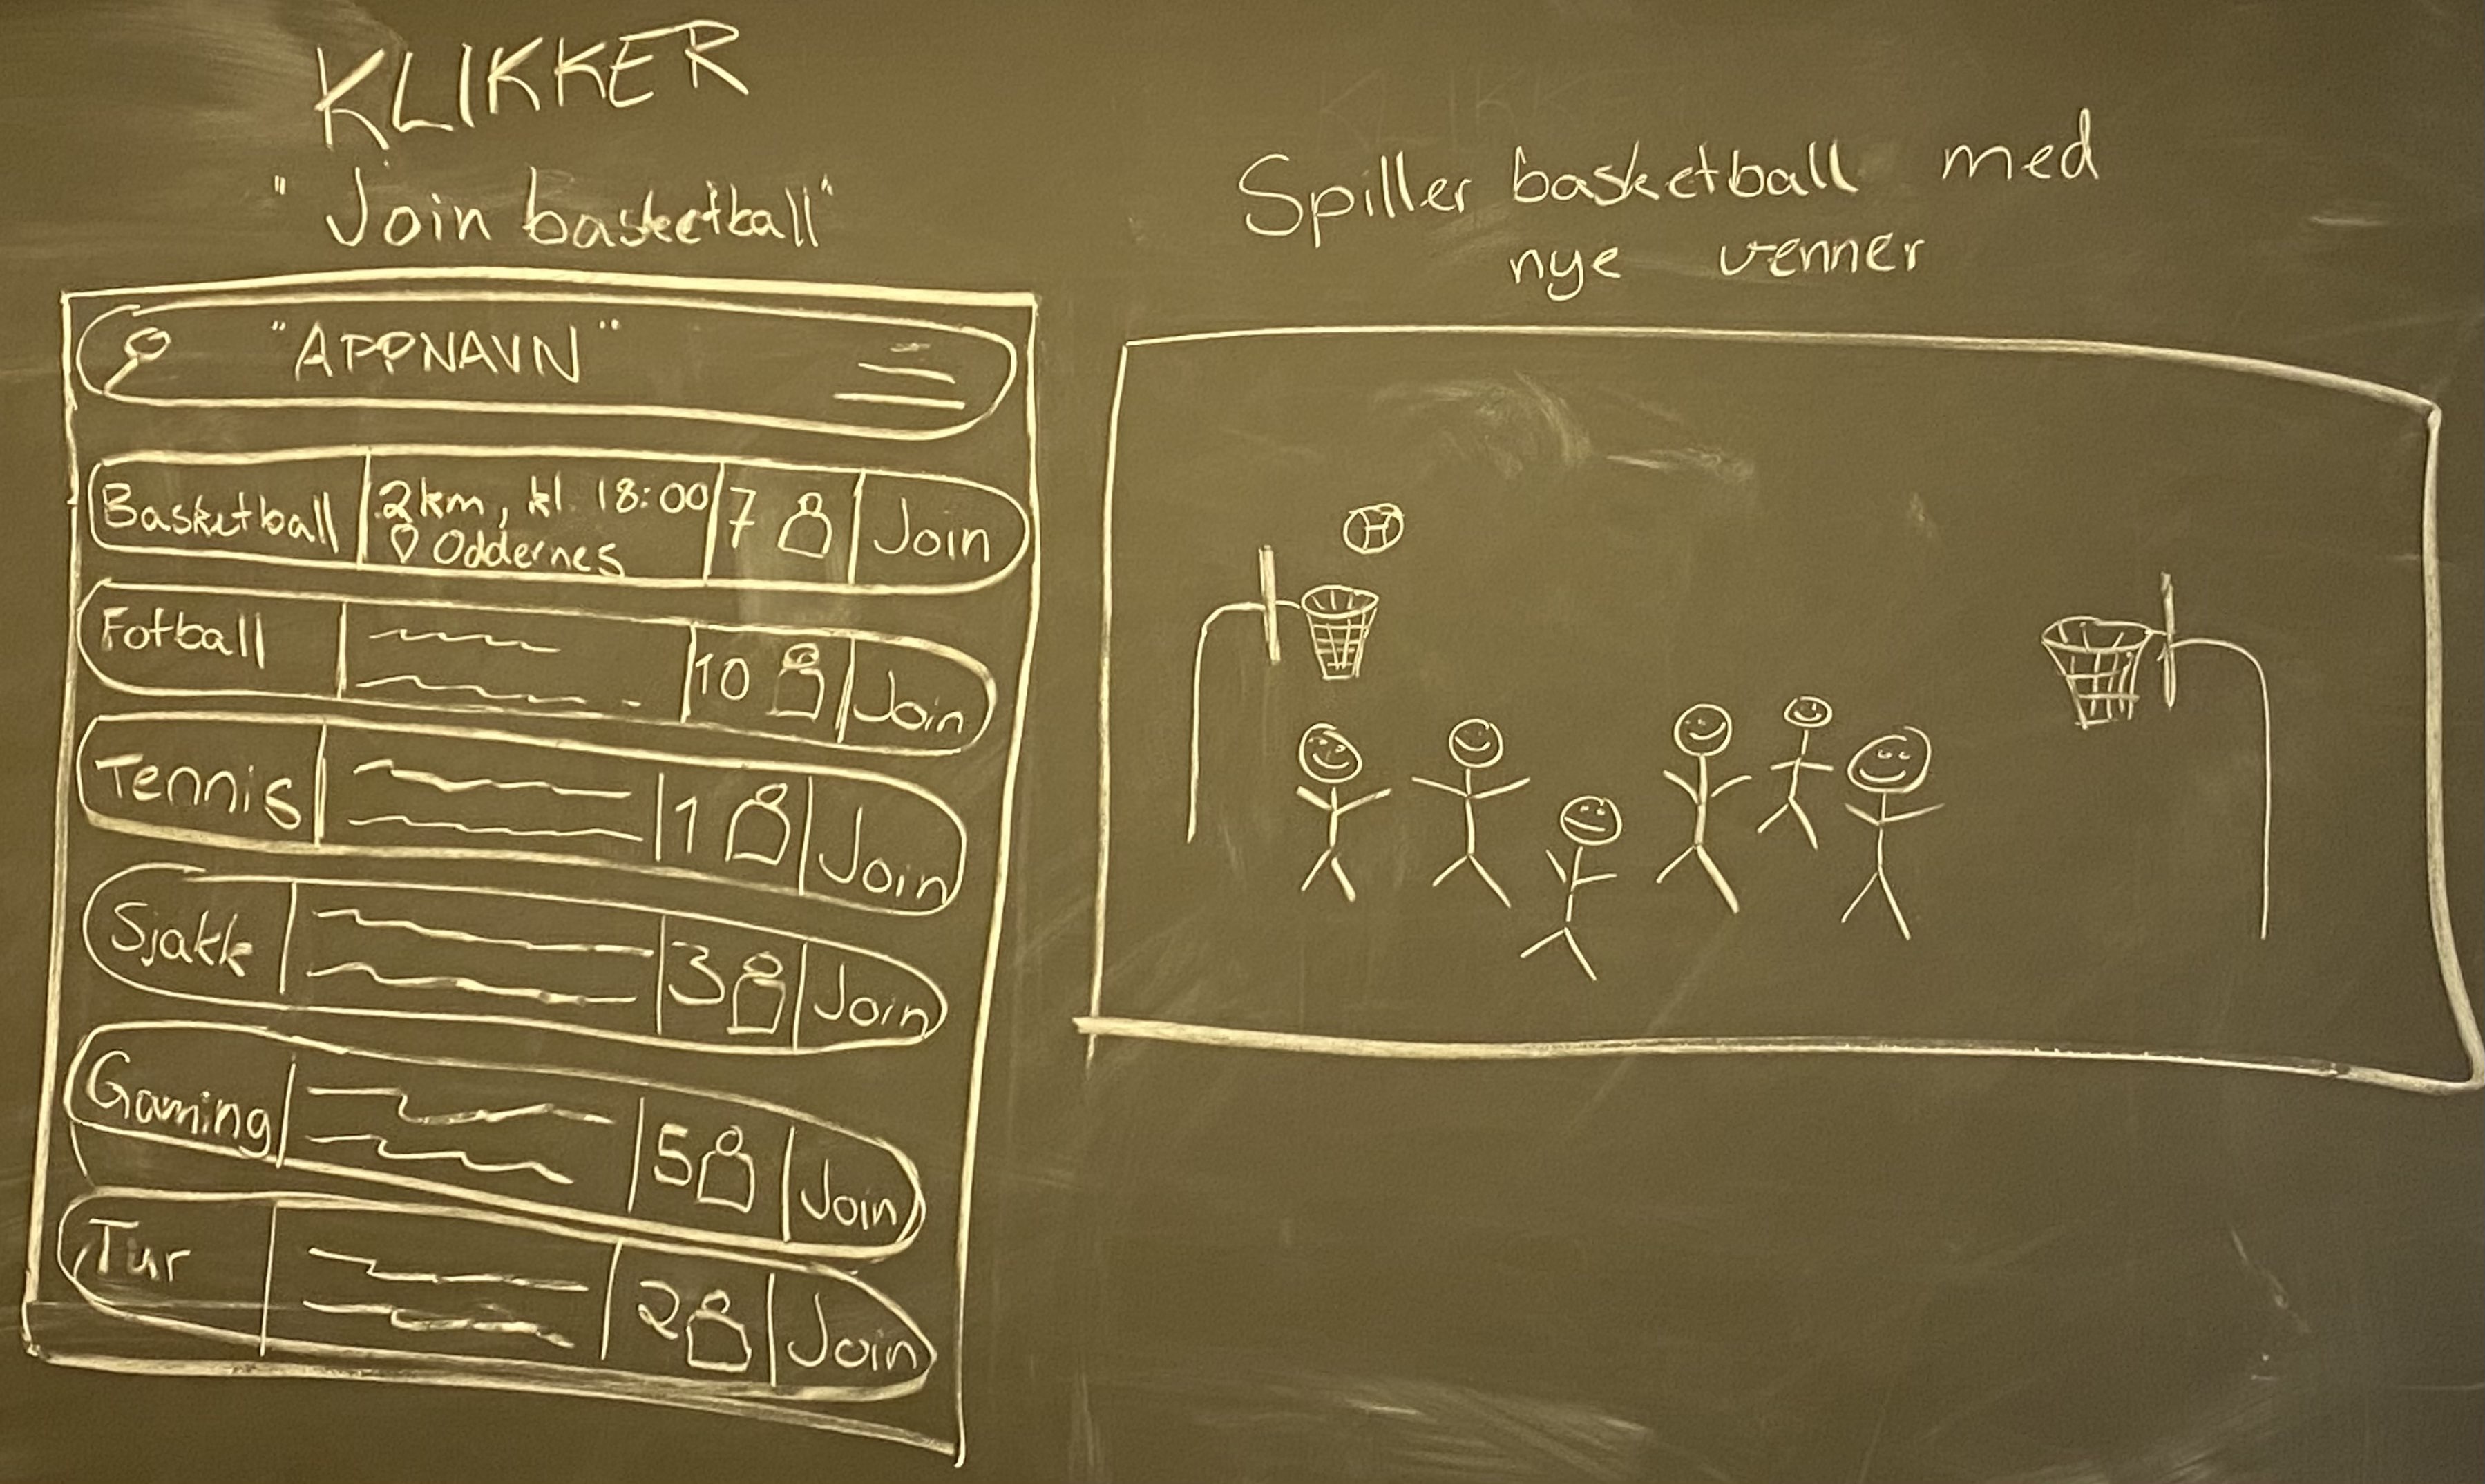 KLIKKER
"Join basketball"
"APPNAVN"
Basketball 2km, kl. 18:00 7 Join
Oddernes
Fotball 10 Join
Tennis 1 Join
Sjakk 3 Join
Gaming 5 Join
Tur 2 Join
Spiller basketball med
nye venner